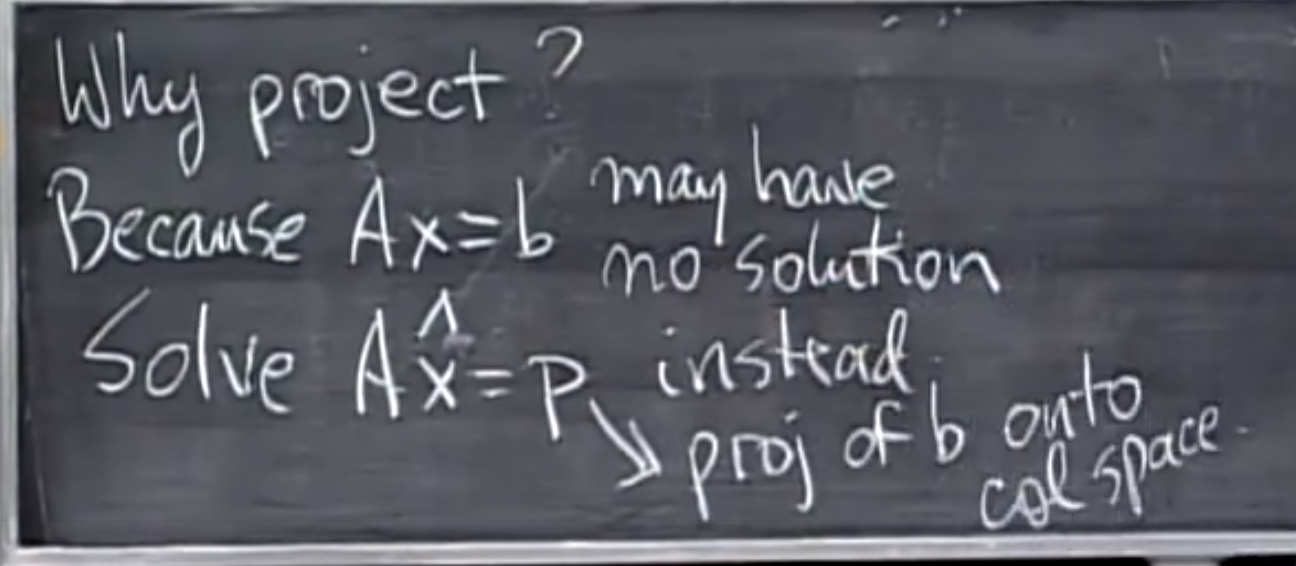 Why project?
Because Ax=b may have
no solution
Solve Ax̂=p instead.
proj of b onto
col space.